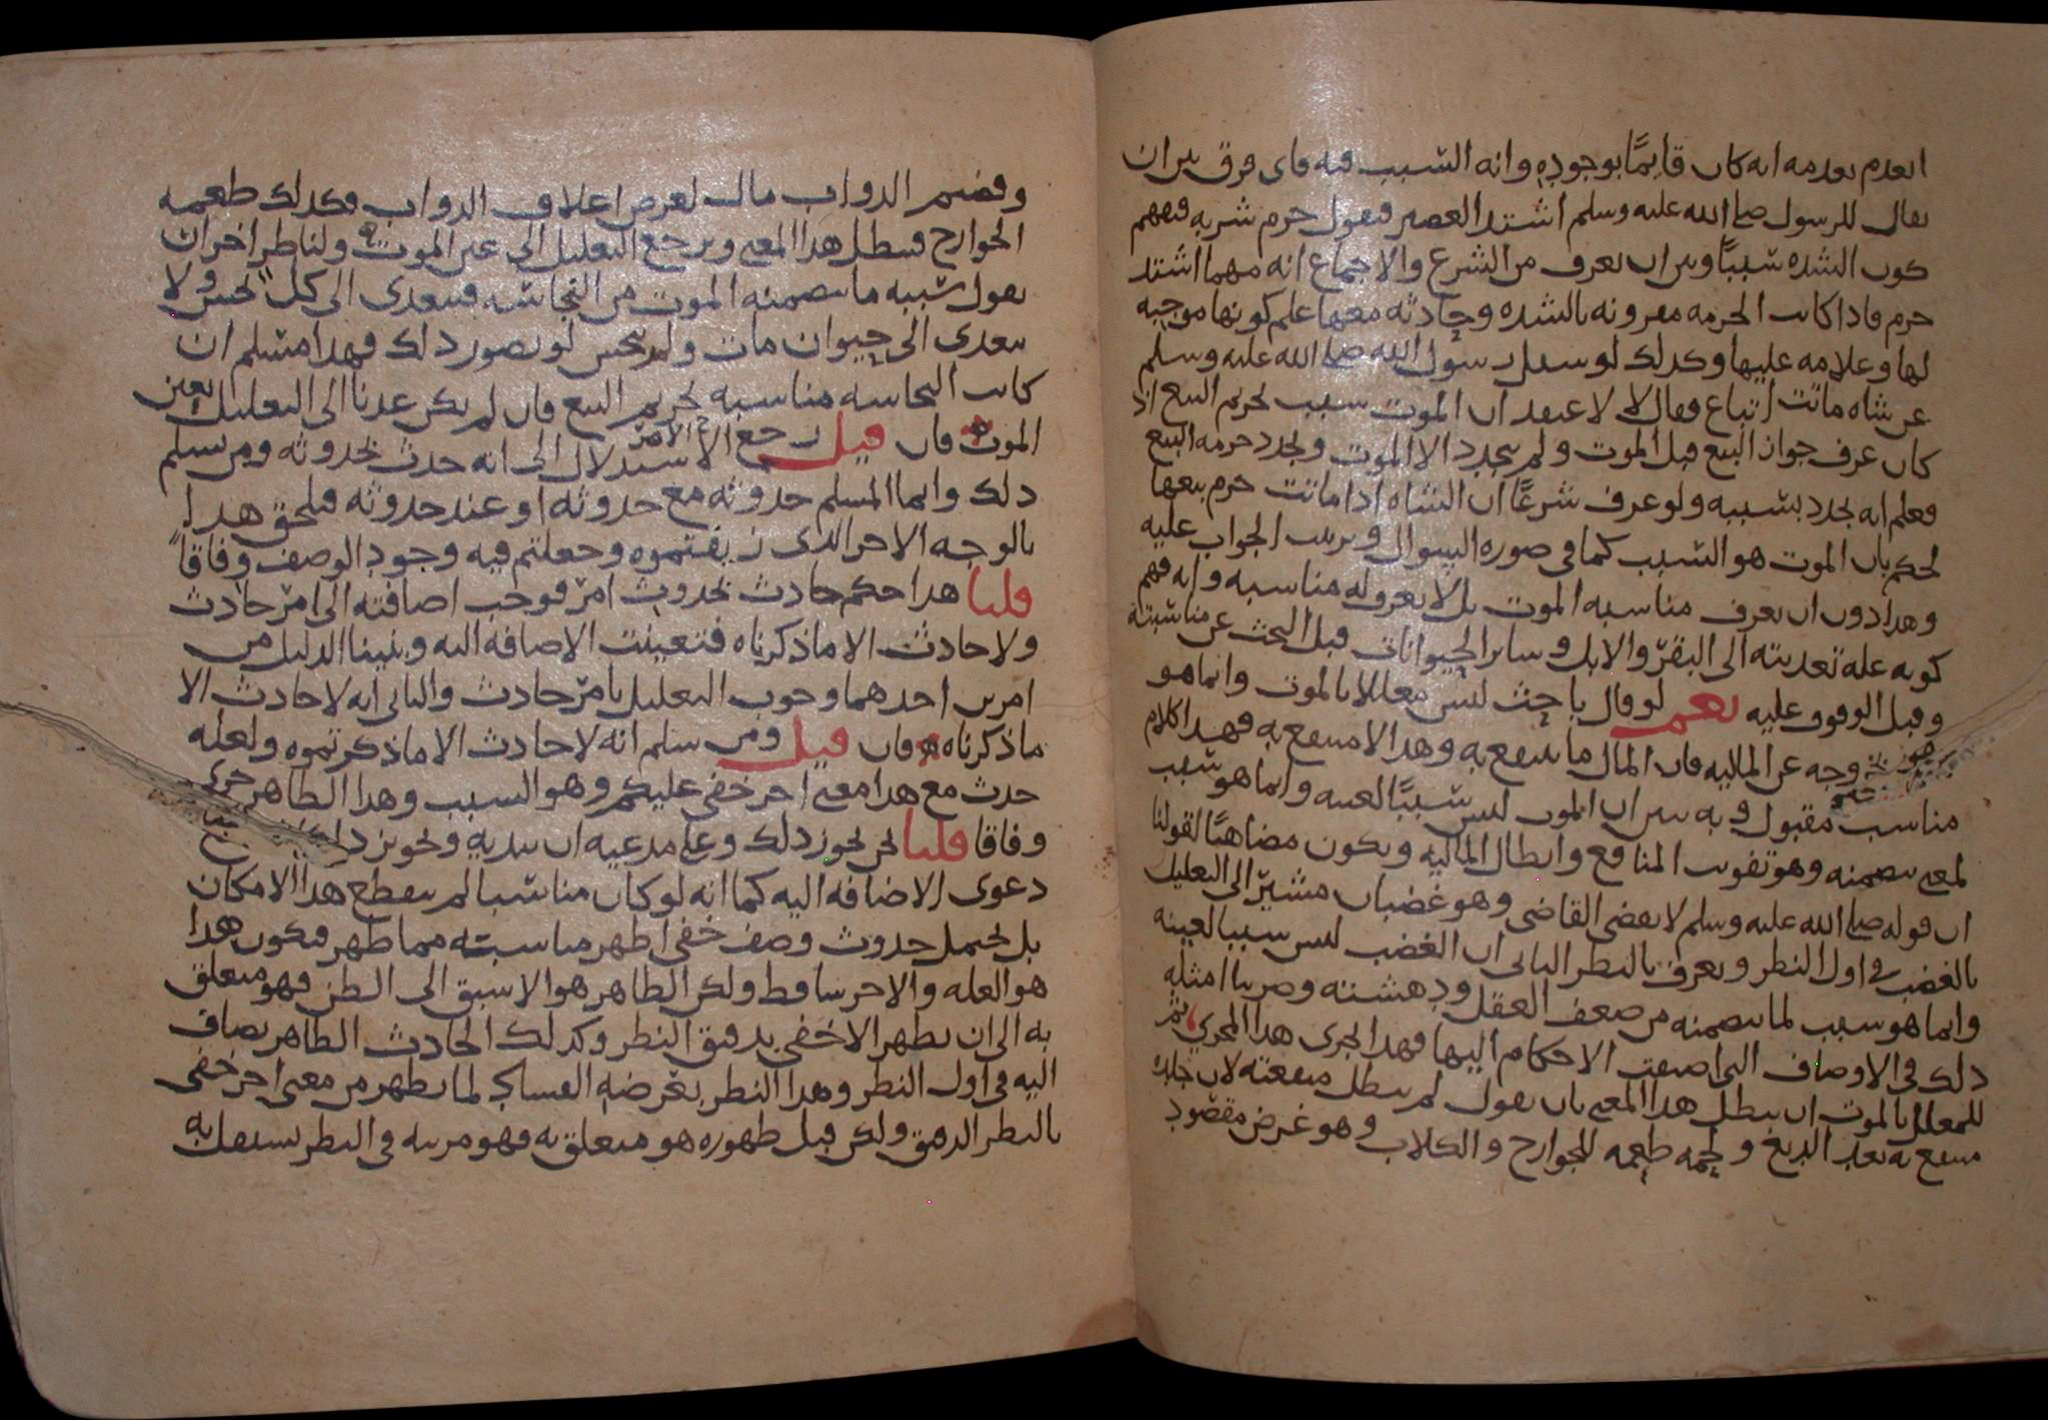 انعدم بعدمه انه كان قايمًا بوجوده وانه السبب فيه فاى فرق بين ان
يقال للرسول صلى الله عليه وسلم اشتد العصير فيقول حرم شربه فيفهم
كون الشده سببًا وبين ان يعرف من الشرع والاجماع انه مهما اشتد
حرم فاذا كانت الحرمه مقرونه بالشده وحادثه معها علم كونها موجبه
لها وعلامه عليها وكذلك لو سيل رسول الله صلى الله عليه وسلم
عن شاه ماتت اتباع فقال لا لاعتقد ان الموت سبب لتحريم البيع اذ
كان عرف جواز البيع قبل الموت ولم يتجدد الا الموت وتجدد حرمه البيع
فعلم انه تجدد بسببه ولو عرف شرعًا ان الشاه اذا ماتت حرم بيعها
لحكم بان الموت هو السبب كما فى صوره السوال وترتيب الجواب عليه
وهذا دون ان يعرف مناسبه الموت بل لا يعرف له مناسبه وانه فهم
كونه عله تعديته الى البقر والابل وساير الحيوانات قبل البحث عن مناسبته
وقبل الوقوف عليه نعم لو قال باحث ليس معللا بالموت وانما هو
خروجه عن الماليه فان المال ما ينتفع به وهذا لا منتفع به فهذا كلام
مناسب مقبول وبه يبين ان الموت ليس سببًا لعينه وانما هو سبب
لمعنى يتضمنه وهو تفويت المنافع وابطال الماليه ويكون مضاهيًا لقولنا
ان قوله صلى الله عليه وسلم لا يقضى القاضى وهو غضبان مشير الى التعليل
بالغضب فى اول النظر ويعرف بالنظر الثانى ان الغضب ليس سببا لعينه
وانما هو سبب لما يتضمنه من ضعف العقل ودهشته وضربنا امثله
ذلك فى الاوصاف التى اضيفت الاحكام اليها فهذا الجرى هذا المجرى ثم
للمعلل بالموت ان يبطل هذا المعنى بان يقول لم يبطل منفعته لان جلده
منتفع به بعد الدبغ ولحمه طعمه للجوارح والكلاب وهو غرض مقصود
وقضيم الدواب مال لغرض اعلاف الدواب فكذلك طعمه
الجوارح فيبطل هذا المعنى ويرجع التعليل الى عين الموت ولناظر اخر ان
يقول سببه ما يتضمنه الموت من النجاسه فيتعدى الى كل نجس ولا
يتعدى الى حيوان مات ولم ينجس لو تصور ذلك فهذا مسلم ان
كانت النجاسه مناسبه لتحريم البيع فان لم يكن عدنا الى التعليل بعين
الموت فان قيل رجع الاستدلال الى انه حدث بحدوثه ومن سلم
ذلك وانما المسلم حدوثه مع حدوثه او عند حدوثه فيلحق هذا
بالوجه الاخر الذى زيفتموه وجعلتم فيه وجود الوصف وفاقًا
قلنا هذا حكم حادث بحدوث امر فوجب اضافته الى امر حادث
ولا حادث الا ما ذكرناه فتعينت الاضافه اليه وبنينا الدليل من
امرين احدهما وجوب التعليل بامر حادث والثانى انه لا حادث الا
ما ذكرناه فان قيل ومن سلم انه لا حادث الا ما ذكرتموه ولعله
حدث مع هذا معنى اخر خفى عليكم وهو السبب وهذا الظاهر جرى
وفاقا قلنا نحن نجوز ذلك وعلى مدعيه ان يبديه وتجويز ذلك
دعوى الاضافه اليه كما انه لو كان مناسبا لم ينقطع هذا الامكان
بل يحتمل حدوث وصف خفى اظهر مناسبته مما ظهر فيكون هذا
هو العله والاخر ساقط ولكن الظاهر هو الاسبق الى الظن فهو متعلق
به الى ان يظهر الاخفى بدقيق النظر وكذلك الحادث الظاهر يضاف
اليه فى اول النظر وهذا النظر بعرضه الفساد لما يظهر من معنى اخر خفى
بالنظر الدقيق ولكن قبل ظهوره هو متعلق به فهو مرتبه فى النظر يستقل به